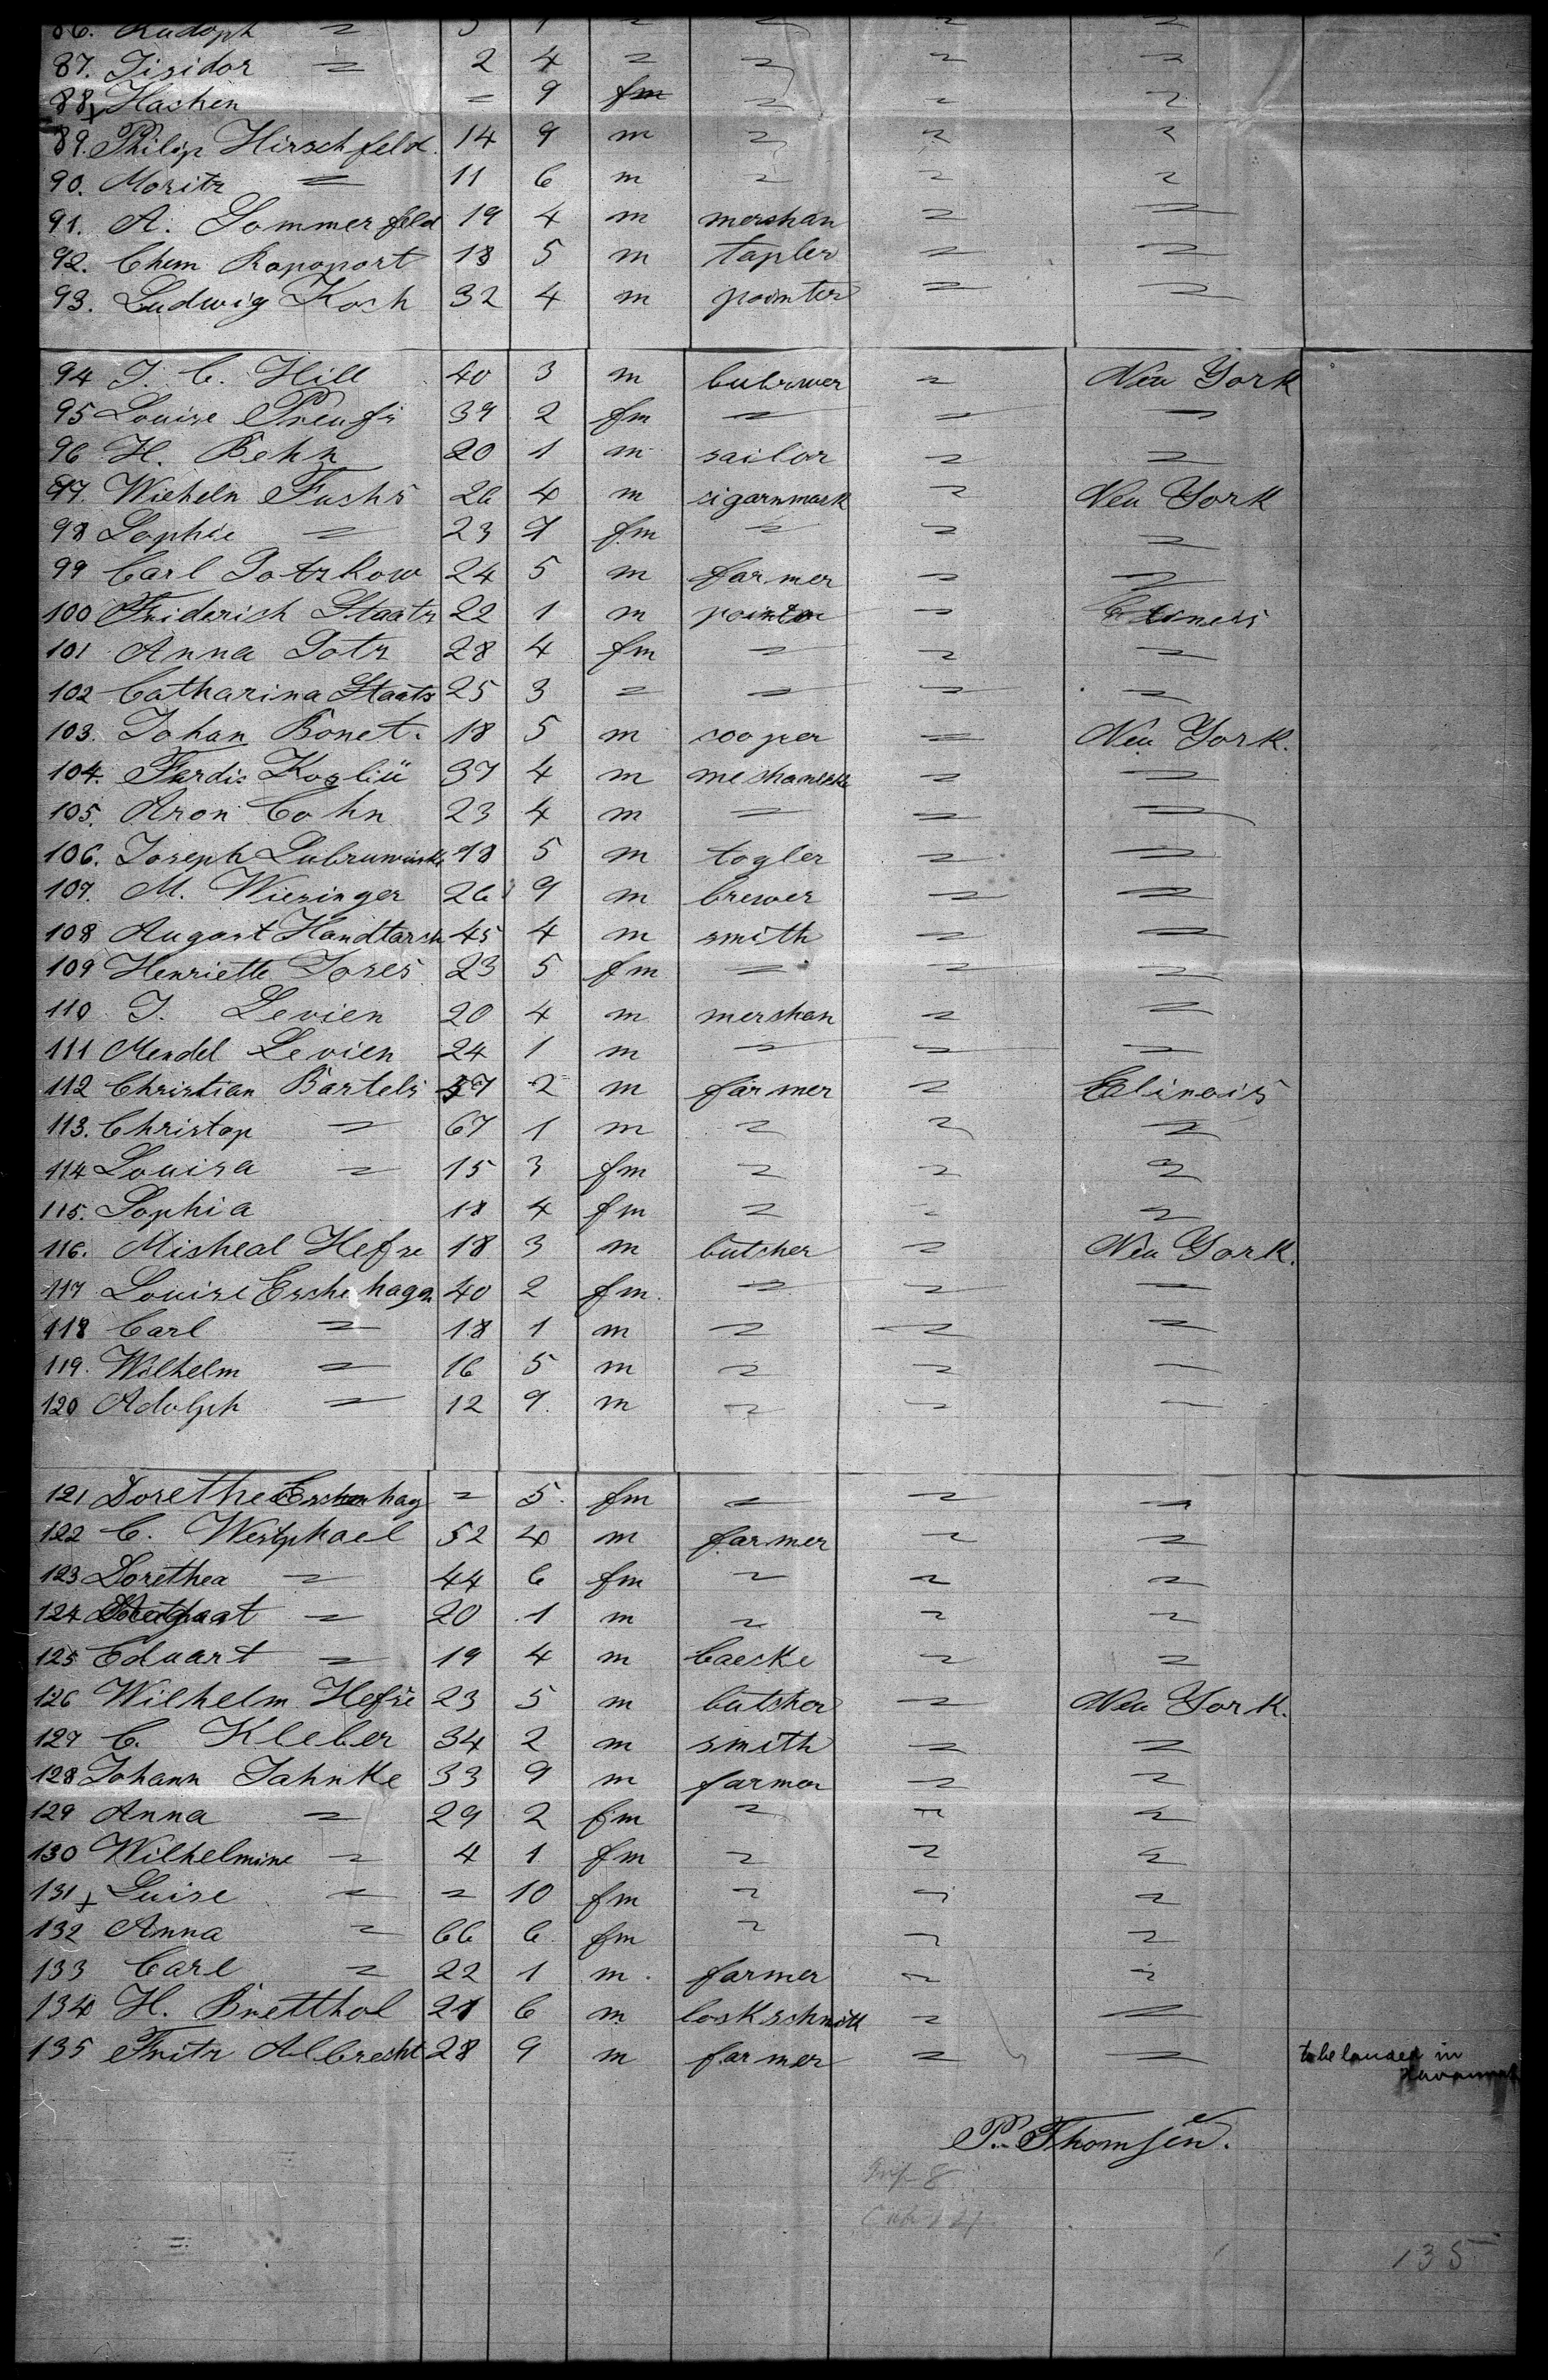 86. Rudoph = 3 1 = = = =
87. Isidor = 2 4 = = = =
88 x Hachen = 9 fm = = =
89. Philip Hirschfeld. 14 9 m = = =
90. Moritz = 11 6 m = = =
91. A. Sommerfeld 19 4 m mershan = =
92. Chem Rapoport 18 5 m tapler = =
93. Ludwig Koch 32 4 m pointer = =
94 J. C. Hill 40 3 m bubrwer = New York
95 Louise Preufs 39 2 fm = = =
96 H. Behn 20 1 m sailor = =
97. Wieheln Fuchs 26 4 m sigarnmark = New York
98 Sophie = 23 7 fm = = =
99 Carl Potzkow 24 5 m farmer = =
100 Friderich Staats 22 1 m pointer =
101 Anna Potz 28 4 fm = = =
102 Catharina Staats 25 3 = = = =
103. Johan Bonet. 18 5 m cooper = New York.
104. Ferdi. Kogliü 37 4 m meshaneske = =
105. Aron Cohn 23 4 m = = =
106. Joseph Lubruwinsk 18 5 m togler = =
107. M. Wiesinger 26 9 m brewer = =
108 August Handtarsh 45 4 m smith = =
109 Henriette Joses 23 5 fm = = =
110 J. Levien 20 4 m mershan = =
111 Mendel Levien 24 1 m = = =
112 Christian Bartels 57 2 m farmer = Elinois
113. Christop = 67 1 m = = =
114 Louisa = 15 3 fm = = =
115. Sophia 18 4 fm = = =
116. Misheal Hefse 18 3 m butcher = New York.
117 Louise Eschehagen 40 2 fm. = = =
118 Carl = 18 1 m = = =
119. Wilhelm = 16 5 m = = =
120 Adolph = 12 9. m = = =
121 Dorethe Eschenhag = 5. fm = = =
122 C. Westphael 52 4 m farmer = =
123 Dorethea = 44 6 fm = = =
124 = 20 1 m = = =
125 Eduart = 19 4 m baeske = =
126 Wilhelm Hefse 23 5 m butsher = New York.
127 C. Kleber 34 2 m smith = =
128 Johann Jahnke 33 9 m farmer = =
129 Anna = 29 2 fm = = =
130 Wilhelmine = 4 1 fm = = =
131 x Luise = = 10 fm = = =
132 Anna = 66 6. fm = = =
133 Carl = 22 1 m. farmer = =
134 H. Bretthol 21 6 m loskschmitt = =
135 Fritz Albrecht 28 9 m farmer = = to be landed in
Havannah
P. Thomsen.
135